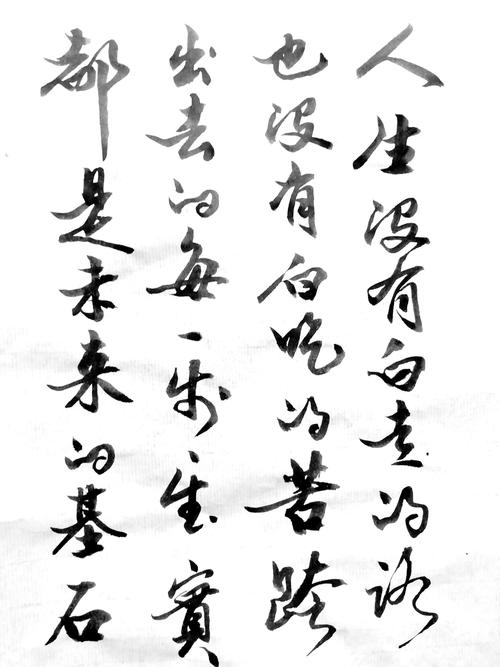 人生没有白走的路
也没有白吃的苦跨
出去的每一步坚實
都是未来的基石